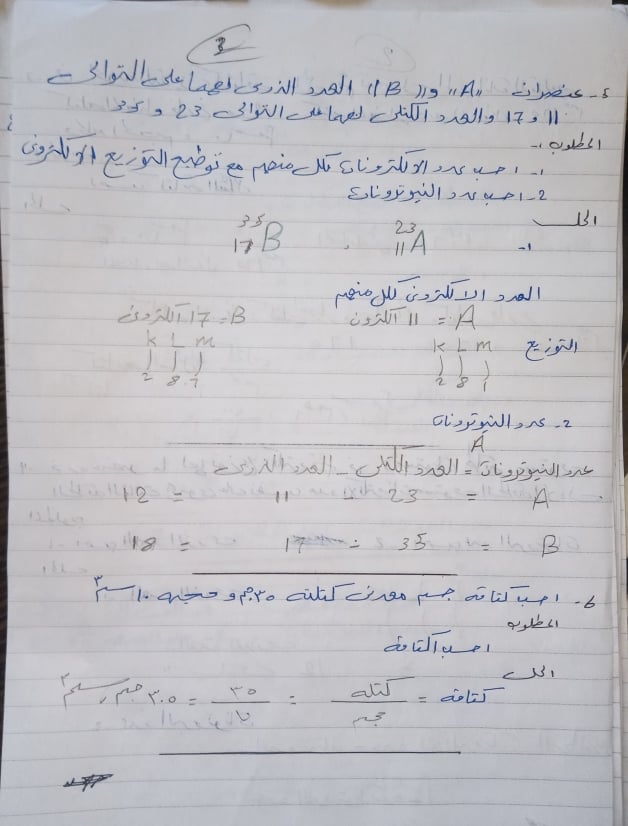 3
5- عنصران "A" و "B" العدد الذرى لهما على التوالى
11 و 17 والعدد الكتلى لهما على التوالى 23 و 35
المطلوب :-
1- احسب عدد الالكترونات لكل منهم مع توضيح التوزيع الالكترونى
2- احسب عدد النيوترونات
الحل
1- 23 11 A , 35 17 B
العدد الالكترونى لكل منهم
A = 11 الكترون B = 17 الكترونى
التوزيع K L M K L M
2 8 1 2 8 7
2- عدد النيوترونات
A
عدد النيوترونات = العدد الكتلى - العدد الذرى
A = 23 - 11 = 12
B = 35 - 17 = 18
6- احسب كثافة جسم معدنى كتلته ٣٥ جم و حجمه ١٠ سم٣
المطلوب
احسب الكثافة
الحل
كثافة = كتله / حجم = ٣٥ / ١٠ = ٣.٥ جم / سم٣